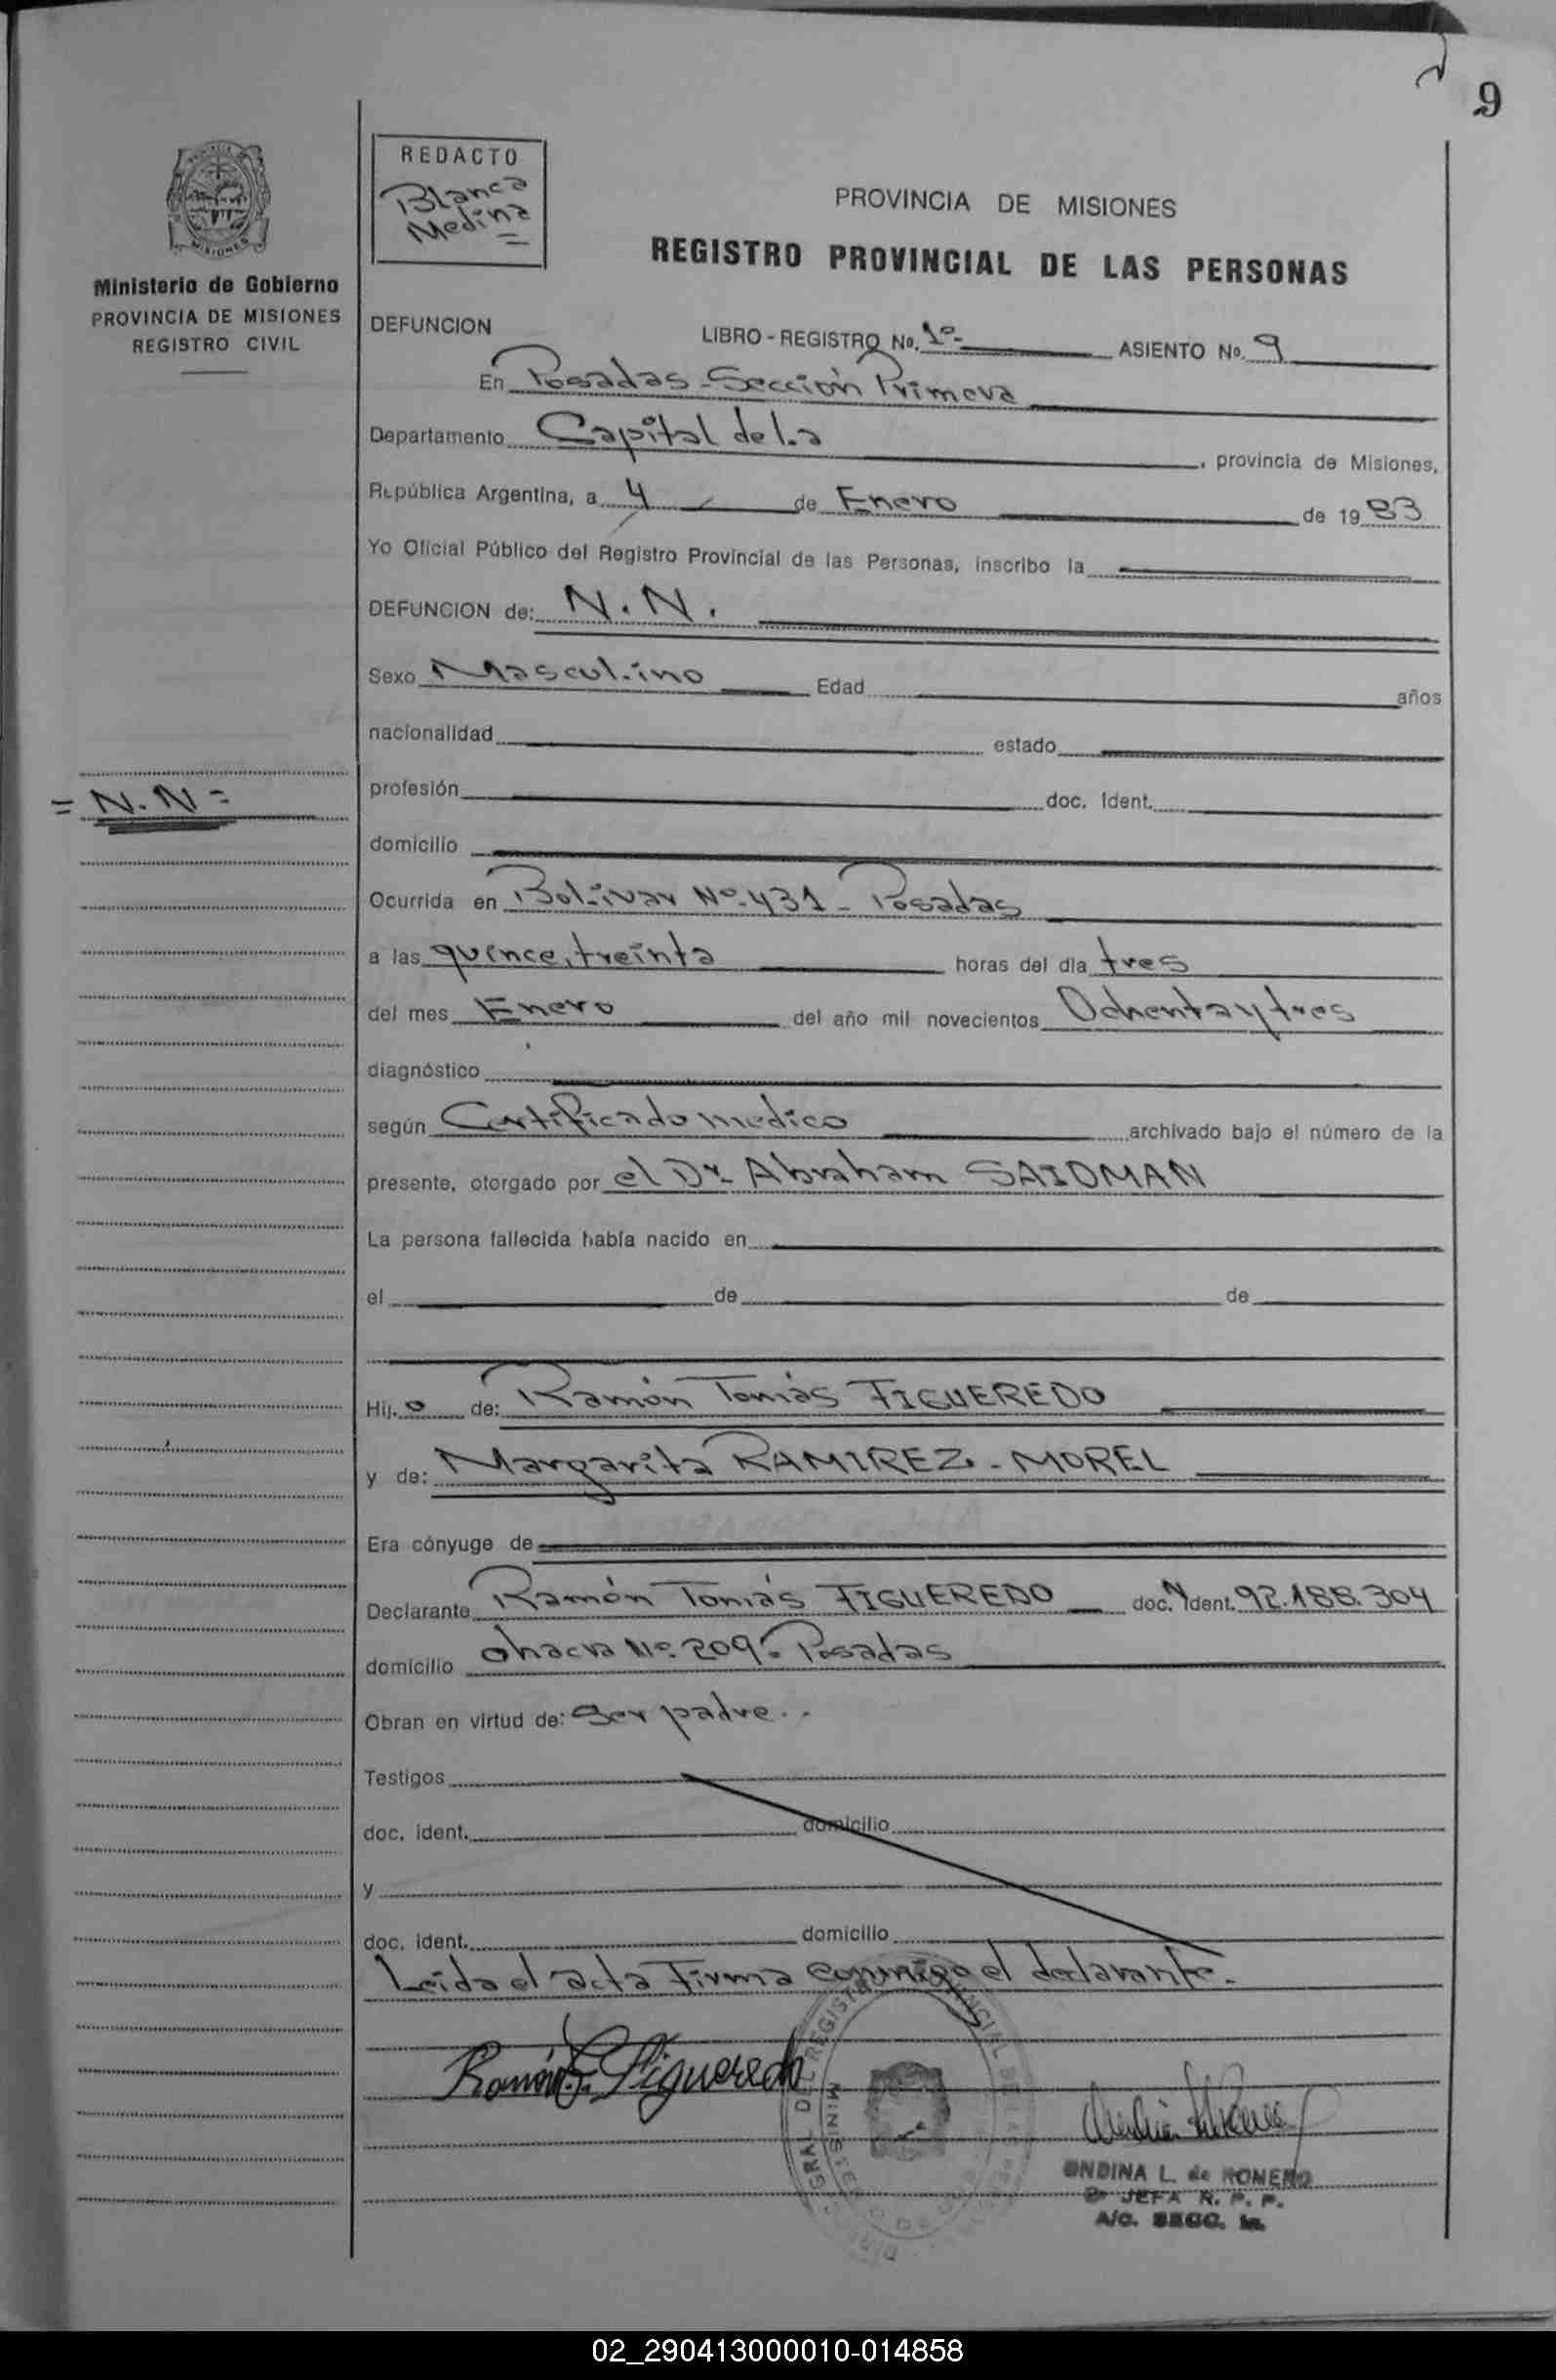 9
REDACTO
Blanca
Medina
PROVINCIA DE MISIONES
REGISTRO PROVINCIAL DE LAS PERSONAS
MISIONES
Ministerio de Gobierno
PROVINCIA DE MISIONES
REGISTRO CIVIL
DEFUNCION LIBRO - REGISTRO No. 1º- ASIENTO No. 9
En Posadas - Sección Primera
Departamento Capital de la , provincia de Misiones,
República Argentina, a 4 de Enero de 19 83
Yo Oficial Público del Registro Provincial de las Personas, inscribo la
DEFUNCION de: N. N.
Sexo Masculino Edad años
nacionalidad estado
= N. N =
profesión doc. ident.
domicilio
Ocurrida en Bolivar Nº 431 - Posadas
a las quince, treinta horas del día tres
del mes Enero del año mil novecientos Ochenta y tres
diagnóstico
según Certificado medico archivado bajo el número de la
presente, otorgado por el Dr. Abraham SAIDMAN
La persona fallecida había nacido en
el de de
Hij. o de: Ramón Tomás FIGUEREDO
y de: Margarita RAMIREZ - MOREL
Era cónyuge de
Declarante Ramón Tomás FIGUEREDO doc. N ident. 92.188.304
domicilio chacra Nº 209 - Posadas
Obran en virtud de: Ser padre..
Testigos
doc. ident. domicilio
y
doc. ident. domicilio
Leida el acta Firma conmigo el declarante.
Ramón T. Figueredo
ONDINA L. de ROMERO
JEFA R. P. P.
A/C. SECC. 1a.
02_290413000010-014858